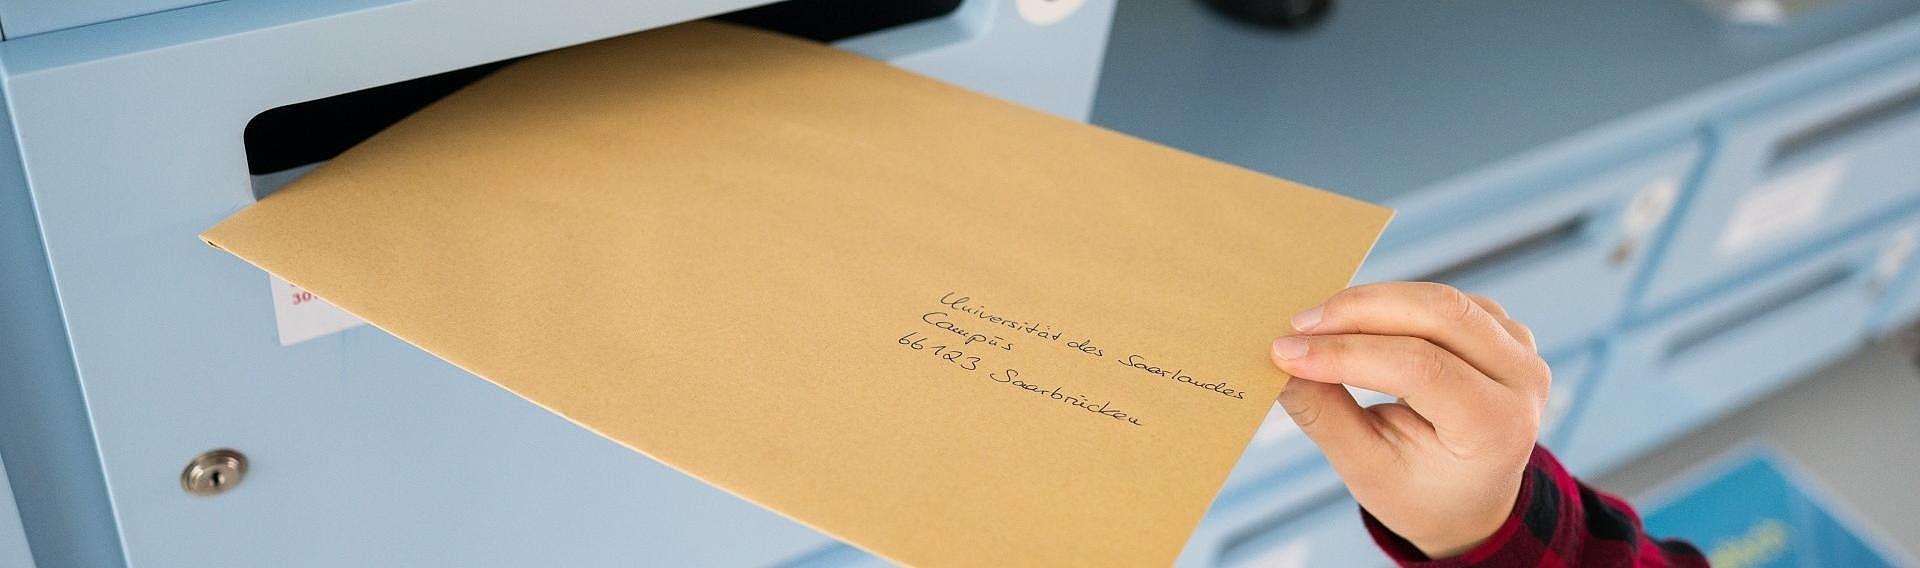 Universität des Saarlandes
Campus
66123 Saarbrücken